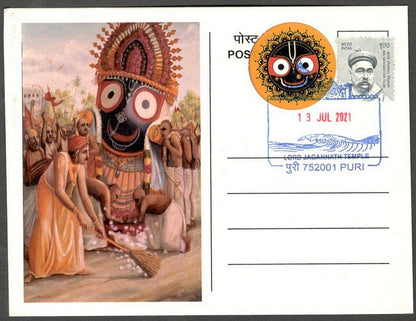 पोस्ट
POS
भारत INDIA
1.00
13 JUL 2021
LORD JAGANNATH TEMPLE
पुरी 752001 PURI